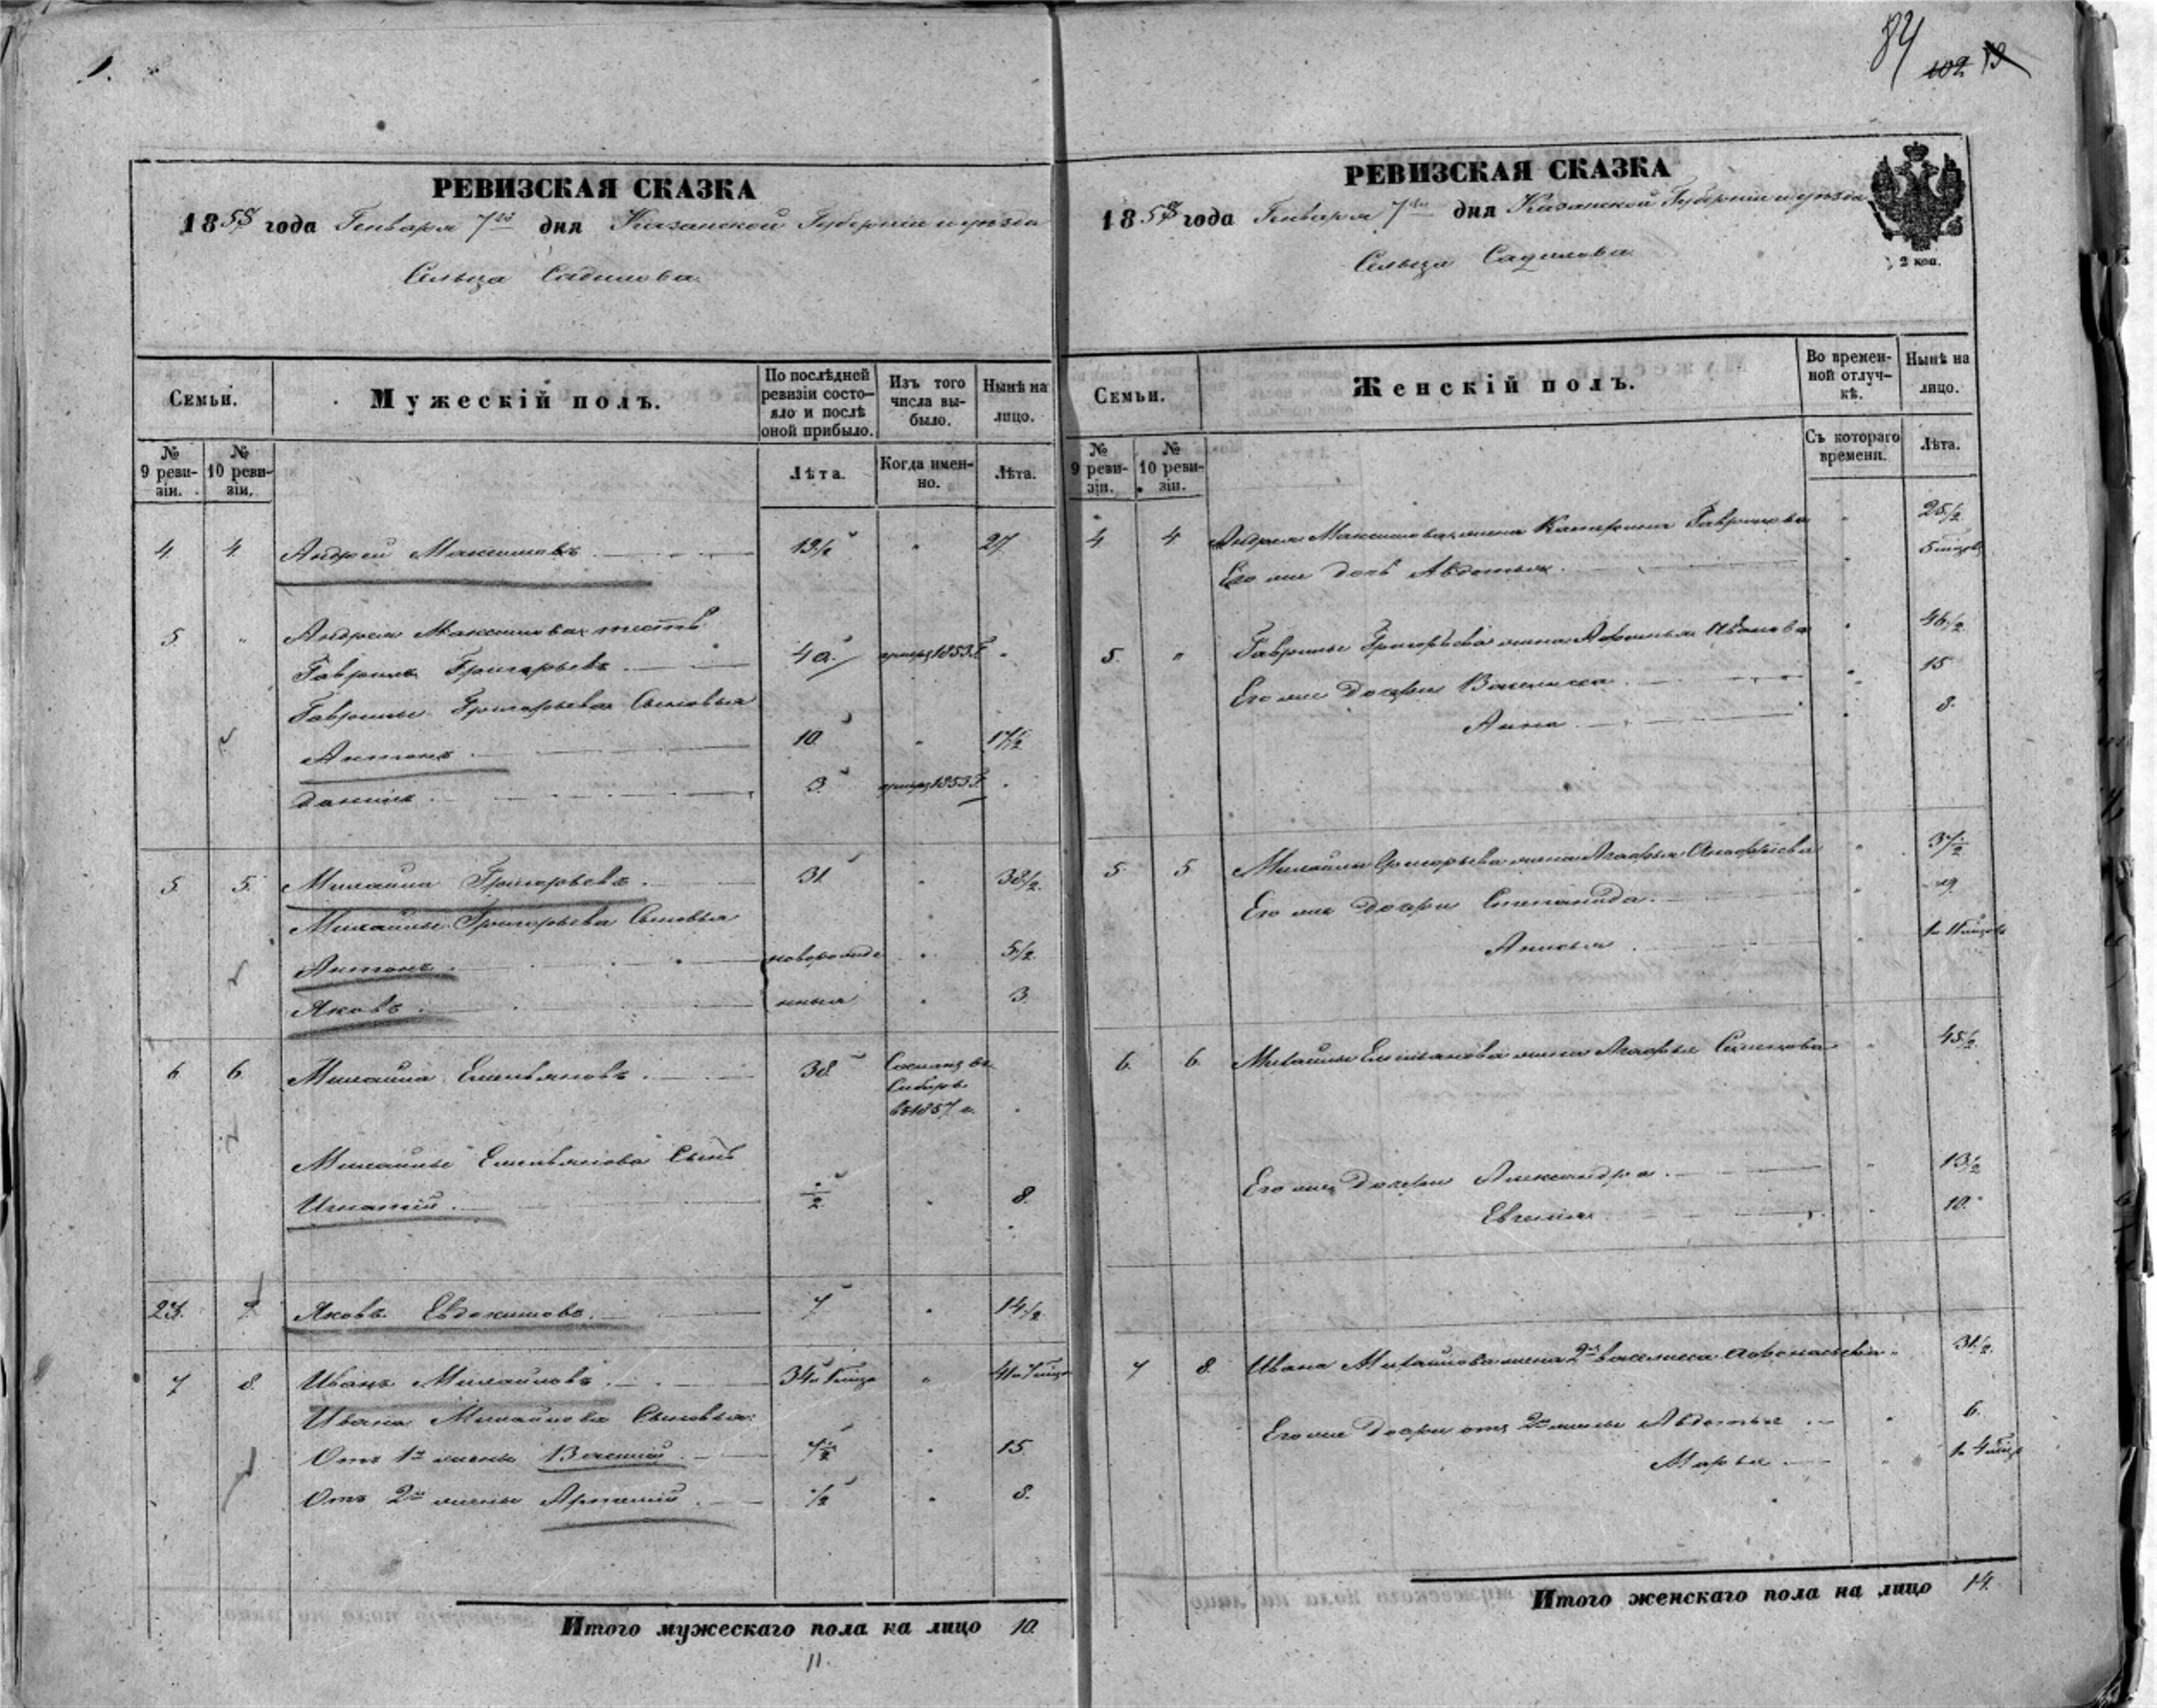 1.
РЕВИЗСКАЯ СКАЗКА
1858 года Генваря 7го дня Казанской Губерніи и уѣзда
Сельца Садилова
Семьи.
Мужескій полъ.
По послѣдней ревизіи состояло и послѣ оной прибыло.
Изъ того числа выбыло.
Нынѣ на лицо.
№ 9 ревизіи.
№ 10 ревизіи.
Лѣта.
Когда именно.
Лѣта.
4 4 Андрей Максимовъ 13½ 21
5 Андрея Максимова тесть
Гаврила Григорьевъ 40 1853 г.
Гаврилы Григорьева Сыновья
Антонъ 10 17½
Данила 3 1853 г.
5 5 Михайла Григорьевъ 31 38½
Михайлы Григорьева Сыновья
Антонъ новорожде 5½
Яковъ нныя 3
6 6 Михайла Емельяновъ 38 Сосланъ въ
Сибирь
въ 1857 г.
Михайлы Емельянова Сынъ
Игнатій ½ 8
23 7 Яковъ Евдокимовъ 7 14½
7 8 Иванъ Михайловъ
Ивана Михайлова Сыновья:
Отъ 1й жены Василій 7½ 15
Отъ 2й жены Артемій ½ 8
Итого мужескаго пола на лицо 10
11.
84 102
РЕВИЗСКАЯ СКАЗКА
1858 года Генваря 7го дня Казанской Губерніи и уѣзда
Сельца Садилова
2 коп.
Семьи.
Женскій полъ.
Во временной отлучкѣ.
Нынѣ на лицо.
№ 9 ревизіи.
№ 10 ревизіи.
Съ котораго времени.
Лѣта.
4 4 Андрея Максимова жена Катерина Гаврилова 25½
Его же дочь Авдотья
5 Гаврилы Григорьева жена Иванова 46½
Его же Дочери Василиса 15
Анна 8
5 5 Михайлы Григорьева жена Агафья 37½
Его же Дочери Степанида 9
Анисья
6 6 Михайлы Емельянова жена Агафья Семенова 45½
Его же Дочери Александра 13½
Евгенія 10
7 8 Ивана Михайлова жена 2я Василиса Афонасьева 31½
Его же Дочери отъ 2й жены Авдотья 6
Марья
Итого женскаго пола на лицо 14